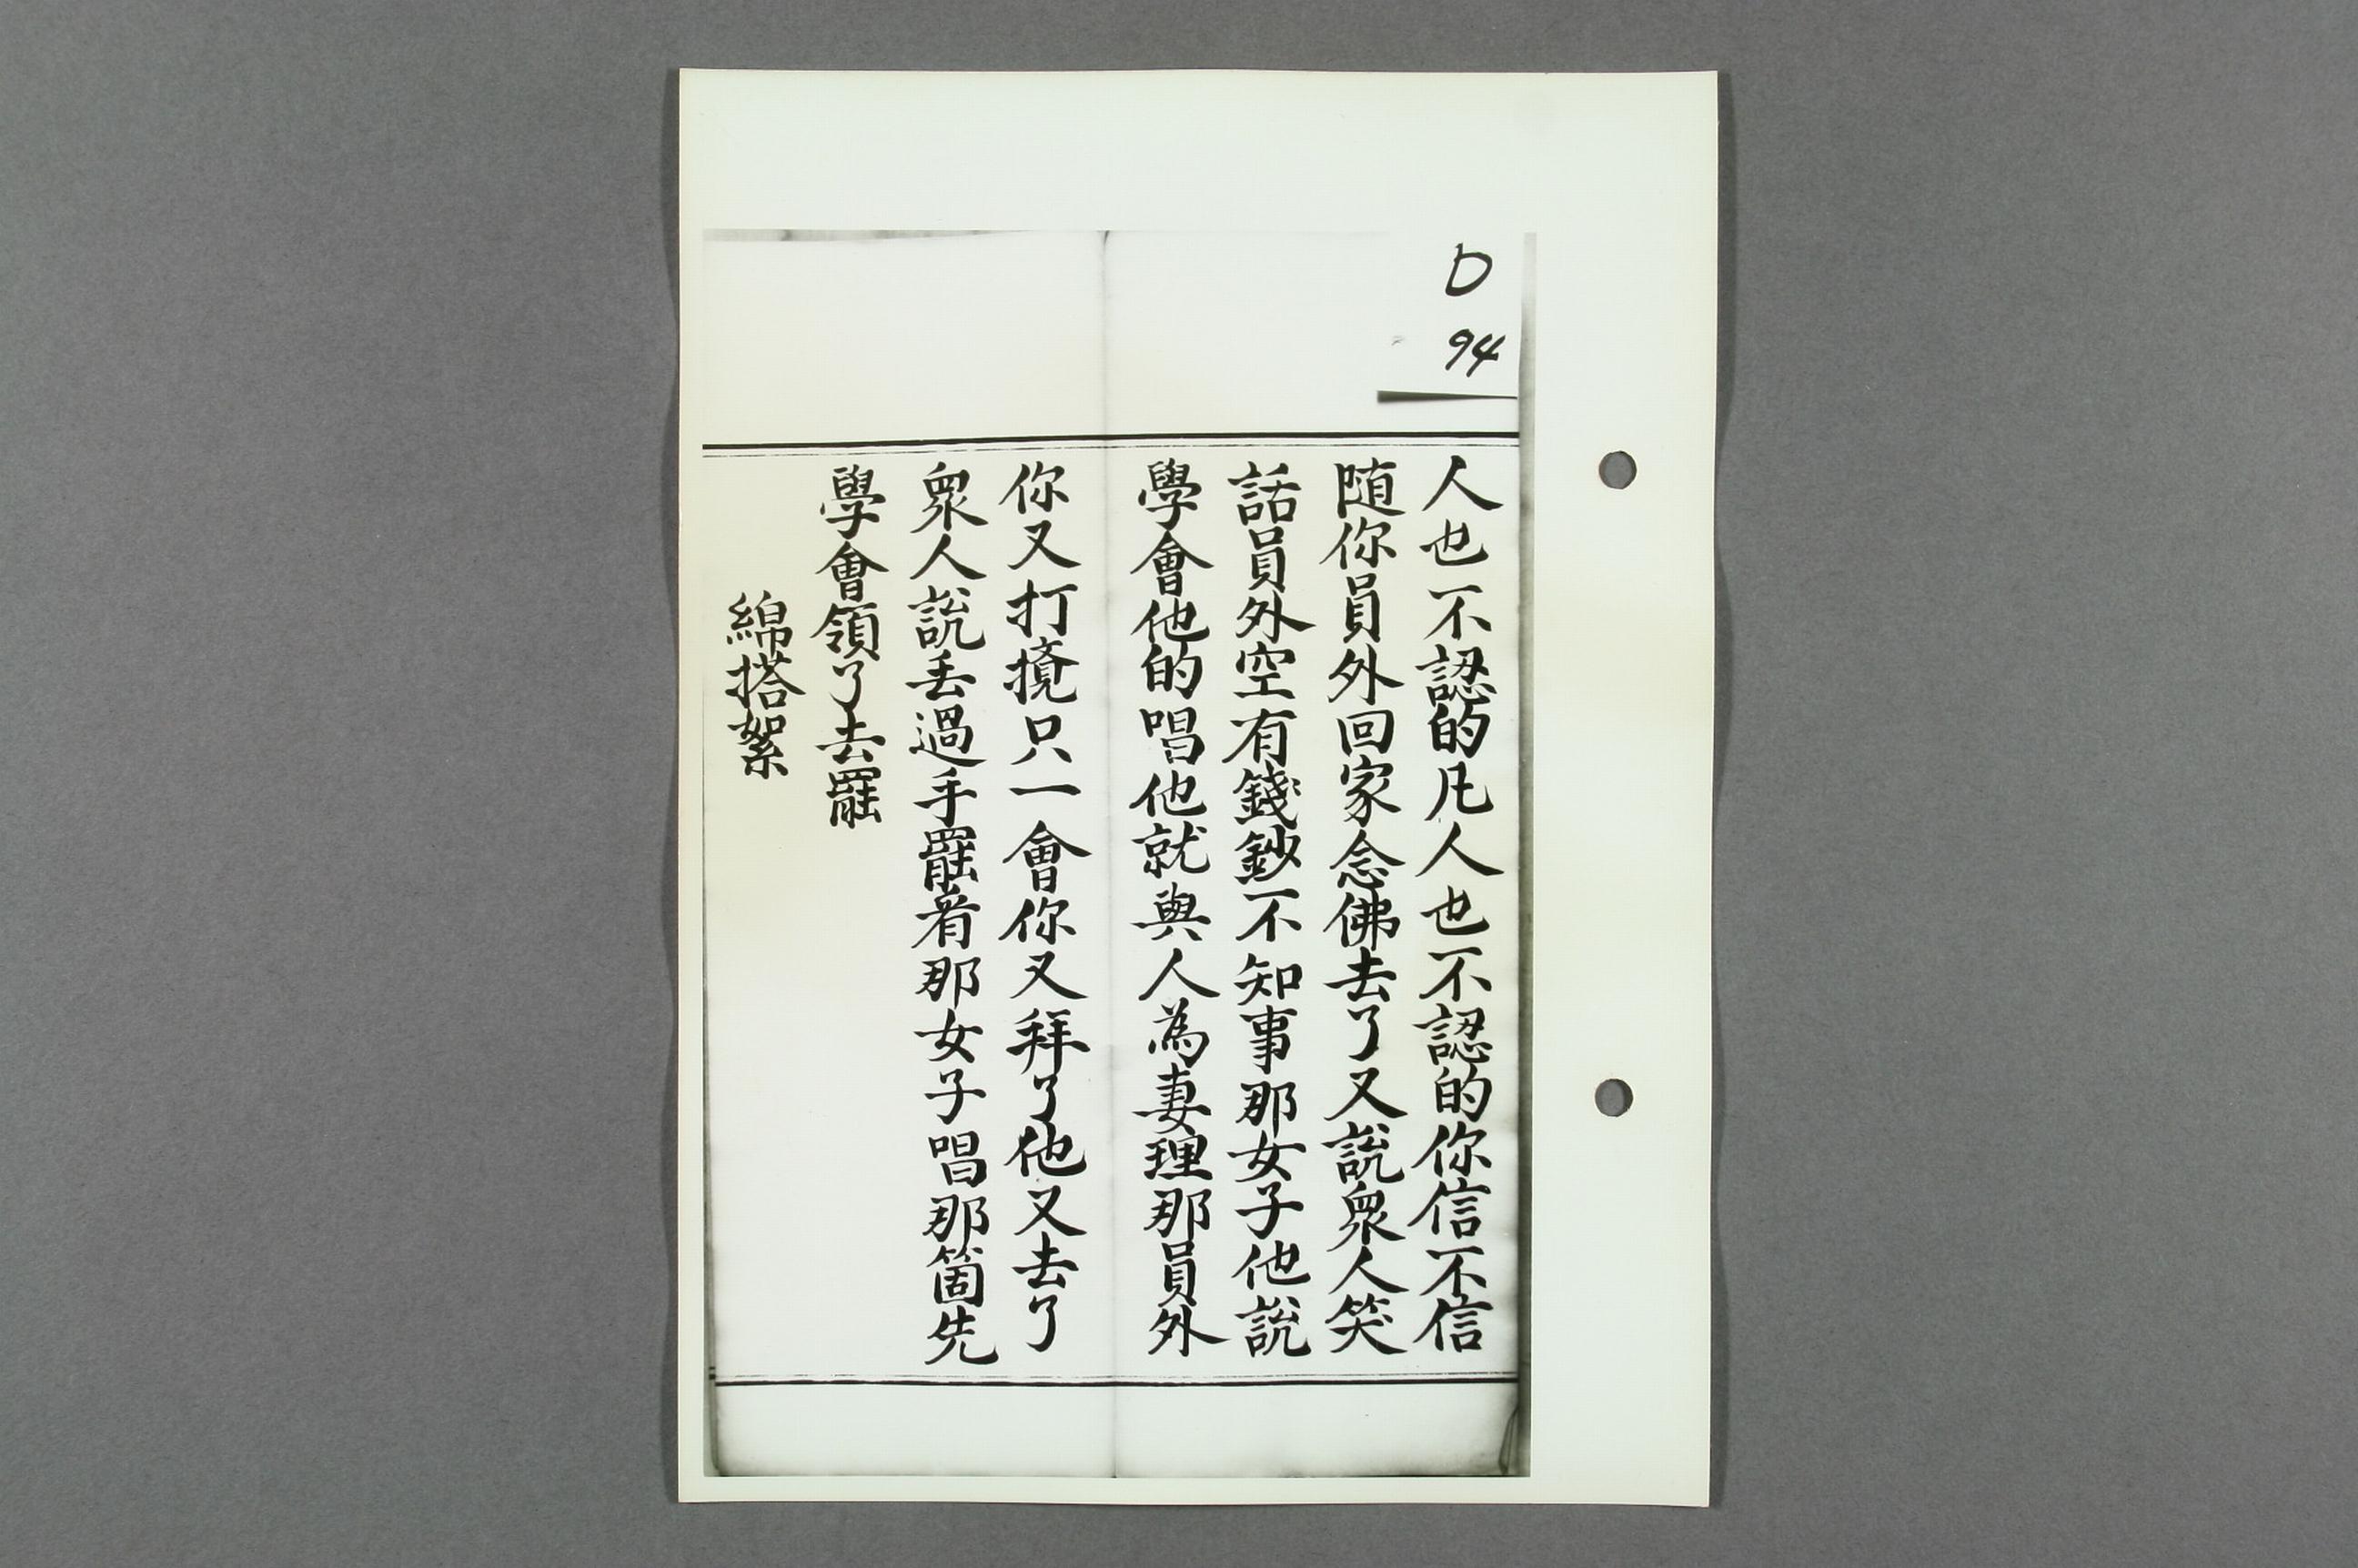 D
94
人也不認的凡人也不認的你信不信
随你員外回家念佛去了又説衆人笑
話員外空有錢鈔不知事那女子他説
學會他的唱他就與人為妻理那員外
你又打攪只一會你又拜了他又去了
衆人説丢過手罷着那女子唱那箇先
學會領了去罷
綿搭絮